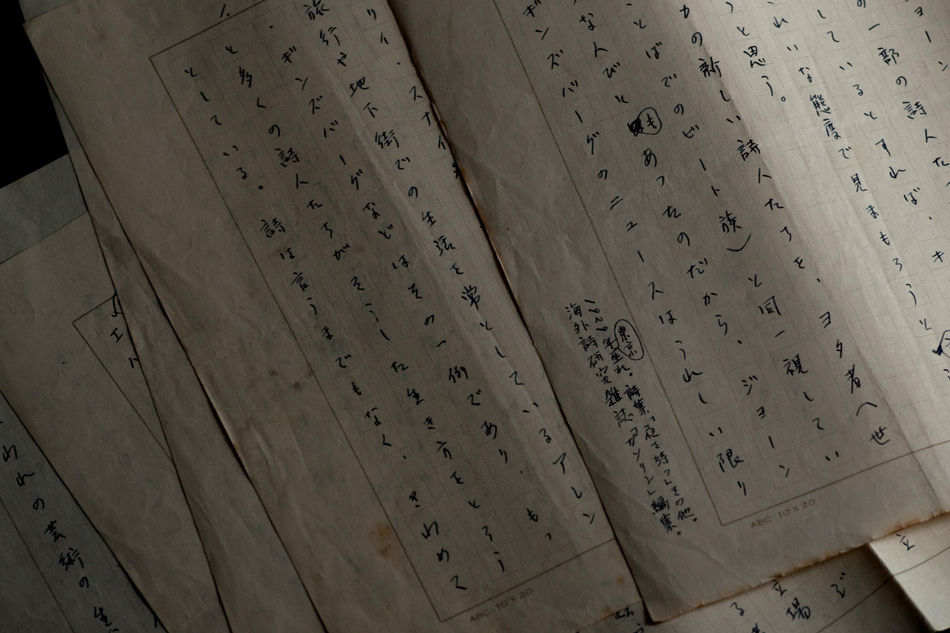 ョーン
の一部の詩人た
しているとすれば、キ
れいな態度で見まもろうと
うと思う。
カの新しい詩人たちを、ヨタ者へ世
とばでのビート族)と同一視してい
な人びともあったのだから、ジョーン
ギンズバーグのニュースはうれしい限り
東京生れ。詩集「夜を待つ」その他。
海外詩研究雑誌 編集。
ABC. 10 X 20
リイ・スナイ
旅行や地下街での生活を常としているアレン
・ギンズバーグなどはその一例であり、もっ
と多くの詩人たちがそうした生き方をとろう
としている。詩は言うまでもなく、きわめて
ABC. 10 X 20
われの芸術の生
る立場で